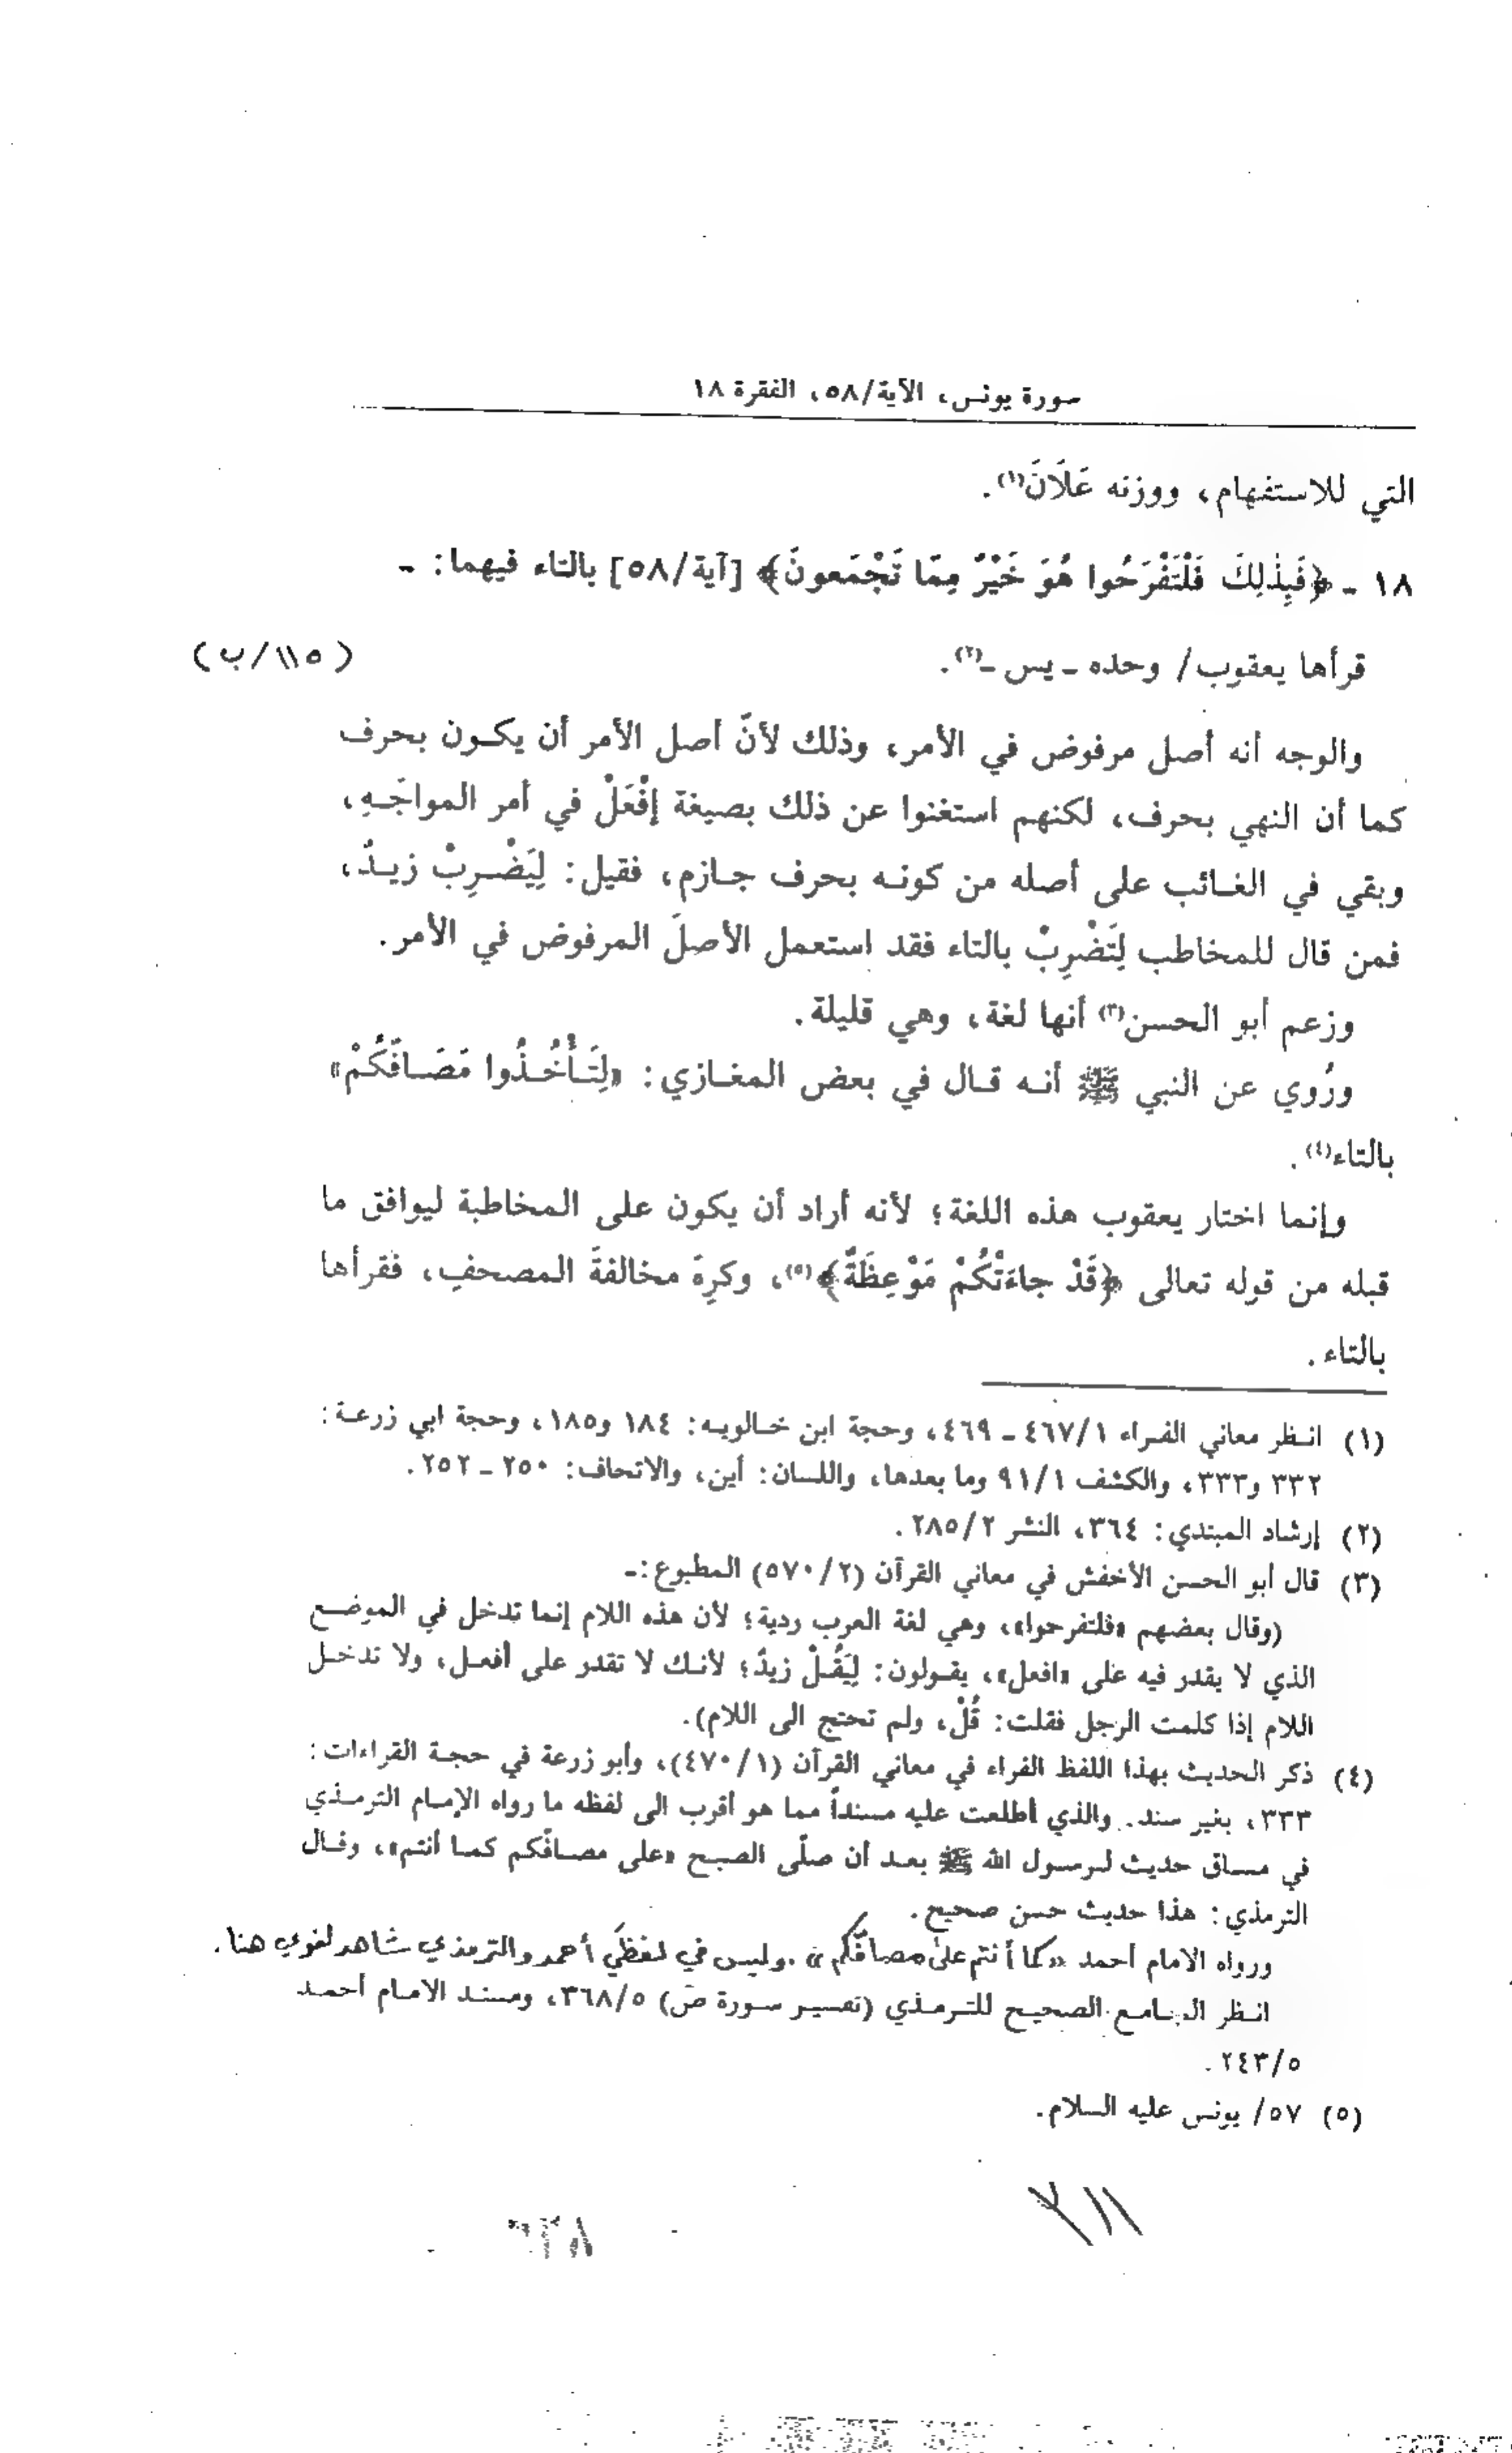 سورة يونس، الآية/٥٨، الفقرة ١٨
التي للاستفهام، ووزنه عَلَانَ(١).
١٨ ـ ﴿فَبِذٰلِكَ فَلْتَفْرَحُوا هُوَ خَيْرٌ مِمّا تَجْمَعونَ﴾ [آية/٥٨] بالتاء فيهما: ـ
قرأها يعقوب/ وحده ـ يس ـ(٢).
(١١٥/ب)
والوجه أنه أصل مرفوض في الأمر، وذلك لأنّ أصل الأمر أن يكون بحرف
كما أن النهي بحرف، لكنهم استغنوا عن ذلك بصيغة إفْعَلْ في أمر المواجَهِ،
وبقي في الغائب على أصله من كونه بحرف جازم، فقيل: لِيَضْرِبْ زيدٌ،
فمن قال للمخاطب لِتَضْرِبْ بالتاء فقد استعمل الأصلَ المرفوض في الأمر.
وزعم أبو الحسن(٣) أنها لغة، وهي قليلة.
ورُوي عن النبي ﷺ أنه قال في بعض المغازي: «لِتَأْخُذُوا مَصَافَّكُمْ»
بالتاء(٤).
وإنما اختار يعقوب هذه اللغة؛ لأنه أراد أن يكون على المخاطبة ليوافق ما
قبله من قوله تعالى ﴿قَدْ جاءَتْكُمْ مَوْعِظَةٌ﴾(٥)، وكرِهَ مخالفةَ المصحفِ، فقرأها
بالتاء.
(١) انظر معاني الفراء ٤٦٧/١ ـ ٤٦٩، وحجة ابن خالويه: ١٨٤ و١٨٥، وحجة ابي زرعة:
٣٣٢ و٣٣٣، والكشف ٩١/١ وما بعدها، واللسان: أين، والاتحاف: ٢٥٠ ـ ٢٥٢.
(٢) إرشاد المبتدي: ٣٦٤، النشر ٢٨٥/٢.
(٣) قال أبو الحسن الأخفش في معاني القرآن (٥٧٠/٢) المطبوع:ـ
(وقال بعضهم «فلتفرحوا»، وهي لغة العرب ردية؛ لأن هذه اللام إنما تدخل في الموضع
الذي لا يقدر فيه على «افعل»، يقولون: لِيَقُلْ زيدٌ؛ لأنك لا تقدر على أفعل، ولا تدخل
اللام إذا كلمت الرجل فقلت: قُلْ، ولم تحتج الى اللام).
(٤) ذكر الحديث بهذا اللفظ الفراء في معاني القرآن (٤٧٠/١)، وأبو زرعة في حجة القراءات:
٣٣٣، بغير سند. والذي أطلعت عليه مسنداً مما هو أقرب الى لفظه ما رواه الإمام الترمذي
في مساق حديث لرسول الله ﷺ بعد أن صلّى الصبح «على مصافّكم كما أنتم»، وقال
الترمذي: هذا حديث حسن صحيح.
ورواه الامام أحمد «كما أنتم على مصافّكم». وليس في لفظَي أحمد والترمذي شاهد لغوي هنا.
انظر الجامع الصحيح للترمذي (تفسير سورة صَ) ٣٦٨/٥، ومسند الامام أحمد
٢٤٣/٥.
(٥) ٥٧/ يونس عليه السلام.